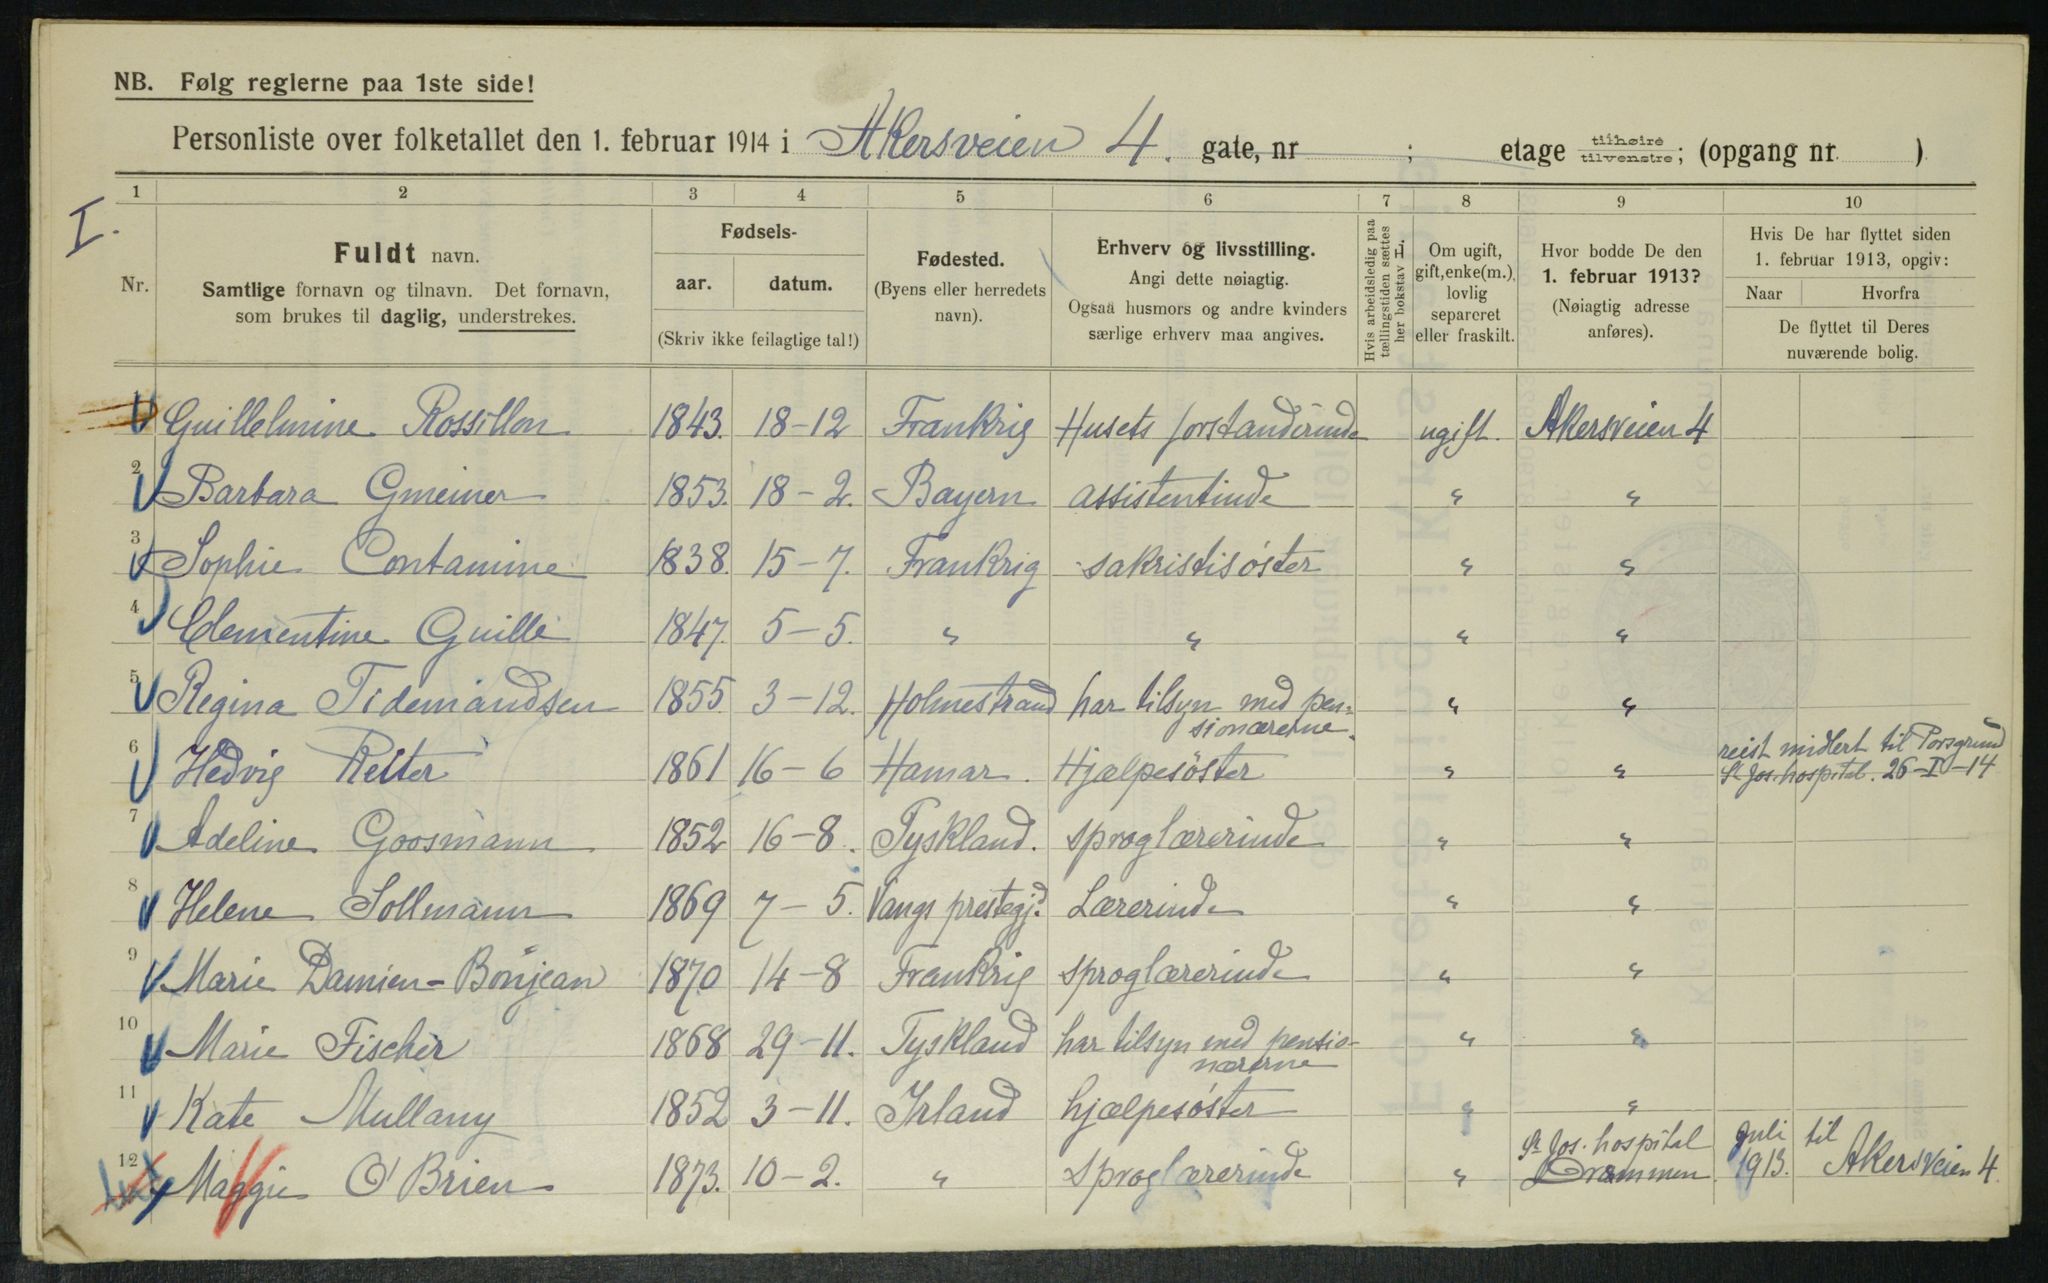 NB. Følg reglerne paa 1ste side!
Personliste over folketallet den 1. februar 1914 i Akersveien 4. gate, nr ; etage tilhøire tilvenstre; (opgang nr )
I.
1 2 3 4 5 6 7 8 9 10
Nr.
Fuldt navn.
Samtlige fornavn og tilnavn. Det fornavn,
som brukes til daglig, understrekes.
Fødsels-
aar. datum.
(Skriv ikke feilagtige tal!)
Fødested.
(Byens eller herredets
navn).
Erhverv og livsstilling.
Angi dette nøiagtig.
Ogsaa husmors og andre kvinders
særlige erhverv maa angives.
Hvis arbeidsledig paa
tællingstiden sættes
her bokstav L
Om ugift,
gift, enke(m.),
lovlig
separeret
eller fraskilt.
Hvor bodde De den
1. februar 1913?
(Nøiagtig adresse
anføres).
Hvis De har flyttet siden
1. februar 1913, opgiv:
Naar Hvorfra
De flyttet til Deres
nuværende bolig.
1 Guillelmine Rossillon 1843. 18-12 Frankrig Husets forstanderinde ugift. Akersveien 4
2 Barbara Gmeiner 1853. 18-2. Bayern assistentinde " "
3 Sophie Contamine 1838. 15-7. Frankrig sakristisøster " "
4 Clementine Guille 1847. 5-5. " " " "
5 Regina Tidemandsen 1855. 3-12. Holmestrand har tilsyn med pen-
sionærerne. " "
6 Hedvig Reiter 1861 16-6 Hamar. Hjælpesøster " " reist midlert til Porsgrund
St Jos. hospital. 26-I-14
7 Adeline Goosmann 1852 16-8. Tyskland. sproglærerinde " "
8 Helene Sollmann 1869 7-5. Vangs prestegjd. Lærerinde " "
9 Marie Damien-Bonjean 1870 14-8 Frankrig sproglærerinde " "
10 Marie Fischer 1868 29-11. Tyskland har tilsyn med pensio-
nærerne " "
11 Kate Mullany 1852 3-11. Irland hjælpesøster " "
12 Maggie O'Brien 1873. 10-2. " sproglærerinde " St Jos. hospital
Drammen Juli
1913. til
Akersveien 4.